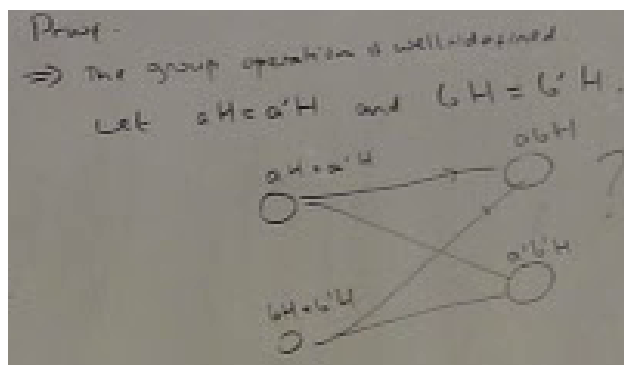 Proof.
⇒) The group operation is well-defined.
Let aH = a'H and bH = b'H.
aH = a'H
abH
?
a'b'H
bH = b'H